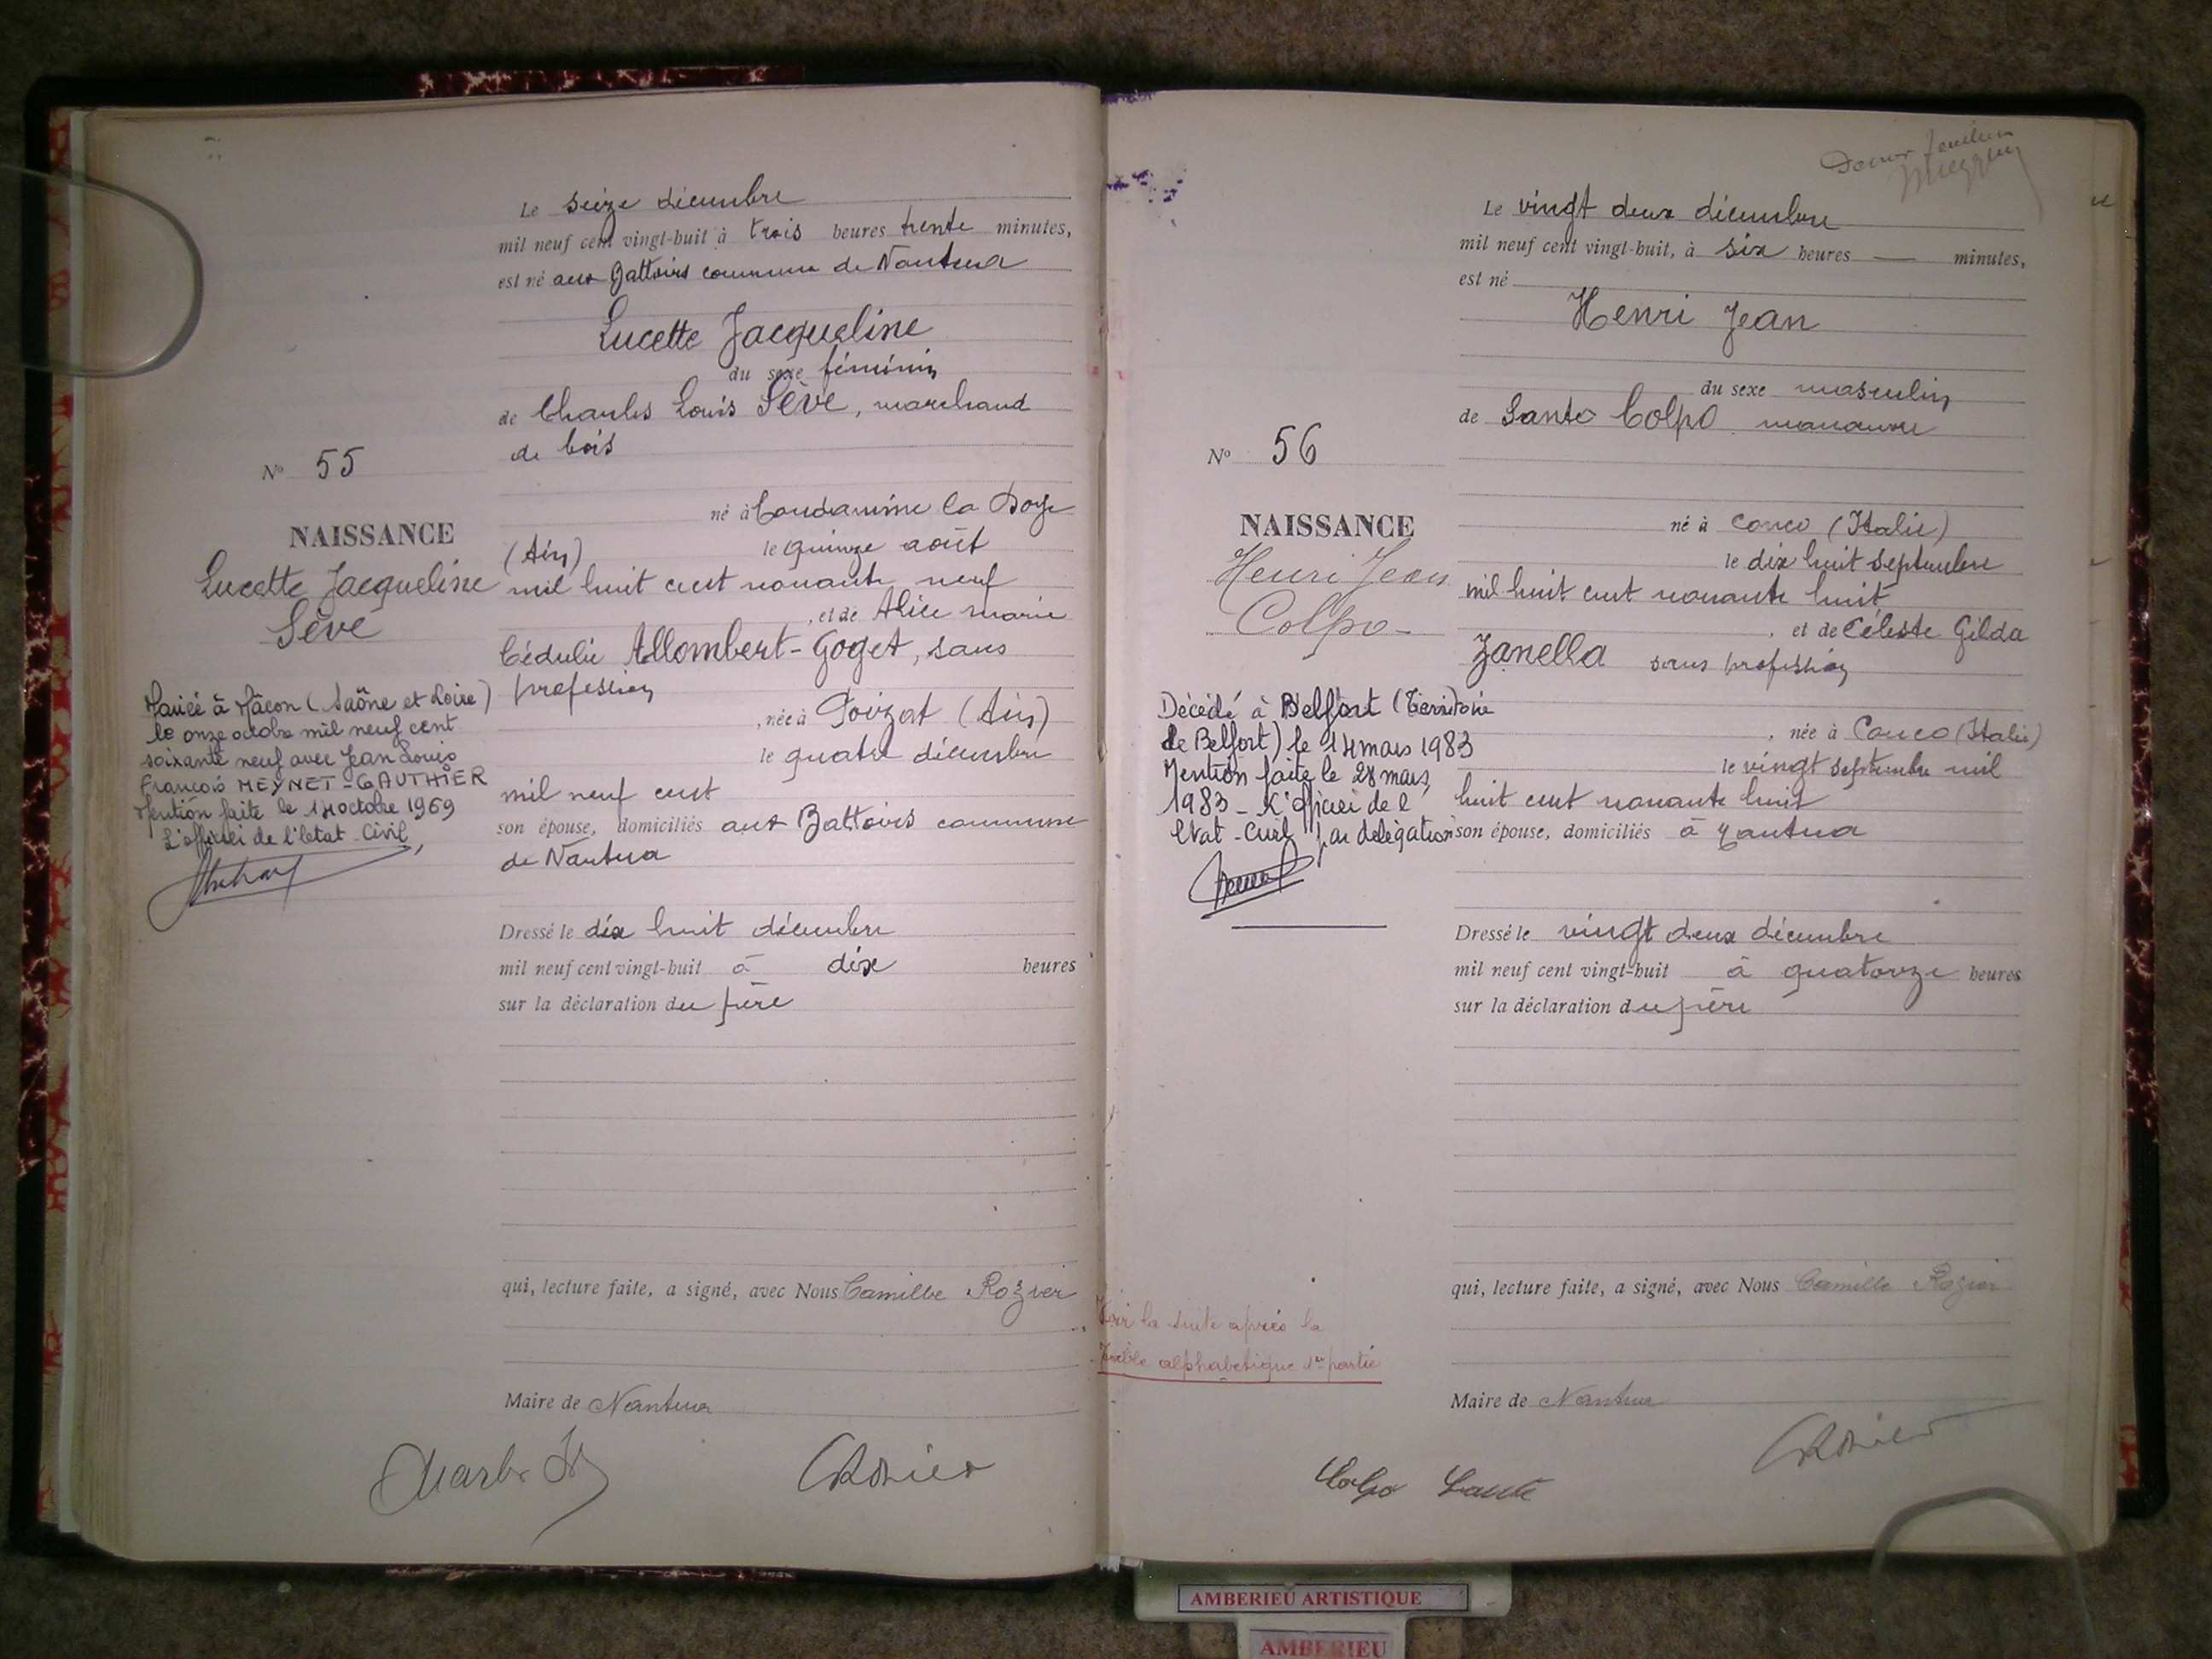 Le seize décembre
mil neuf cent vingt-huit à trois heures trente minutes,
est né aux Battoirs commune de Nantua
Lucette Jacqueline
du sexe féminin
de Charles Louis Sève, marchand
de bois
né à Condamine la Doye
(Ain) le quinze août
mil huit cent nonante neuf
, et de Alice Marie
Cédulie Allombert-Goget, sans
profession
, née à Poizat (Ain)
le quatre décembre
mil neuf cent
son épouse, domiciliés aux Battoirs commune
de Nantua
Dressé le dix huit décembre
mil neuf cent vingt-huit à dix heures
sur la déclaration du père
qui, lecture faite, a signé, avec Nous Camille Rozier
Maire de Nantua
No 55
NAISSANCE
Lucette Jacqueline
Sève
Mariée à Mâcon (Saône et Loire)
le onze octobre mil neuf cent
soixante neuf avec Jean Louis
François MEYNET-GAUTHIER
Mention faite le 14 octobre 1969
L'officier de l'Etat-Civil,
Le vingt deux décembre
mil neuf cent vingt-huit, à six heures — minutes,
est né
Henri Jean
du sexe masculin
de Santo Colpo manœuvre
né à Conco (Italie)
le dix huit septembre
mil huit cent nonante huit
, et de Céleste Gilda
Zanella sans profession
, née à Conco (Italie)
le vingt septembre mil
huit cent nonante huit
son épouse, domiciliés à Nantua
Dressé le vingt deux décembre
mil neuf cent vingt-huit à quatorze heures
sur la déclaration du père
qui, lecture faite, a signé, avec Nous Camille Rozier
Maire de Nantua
Colpo Sante
No 56
NAISSANCE
Henri Jean
Colpo
Décédé à Belfort (Territoire
de Belfort) le 14 mars 1983
Mention faite le 28 mars
1983 - L'officier de l'
Etat-Civil par délégation
Voir la suite après la
Table alphabétique 1re partie
AMBERIEU ARTISTIQUE
AMBERIEU